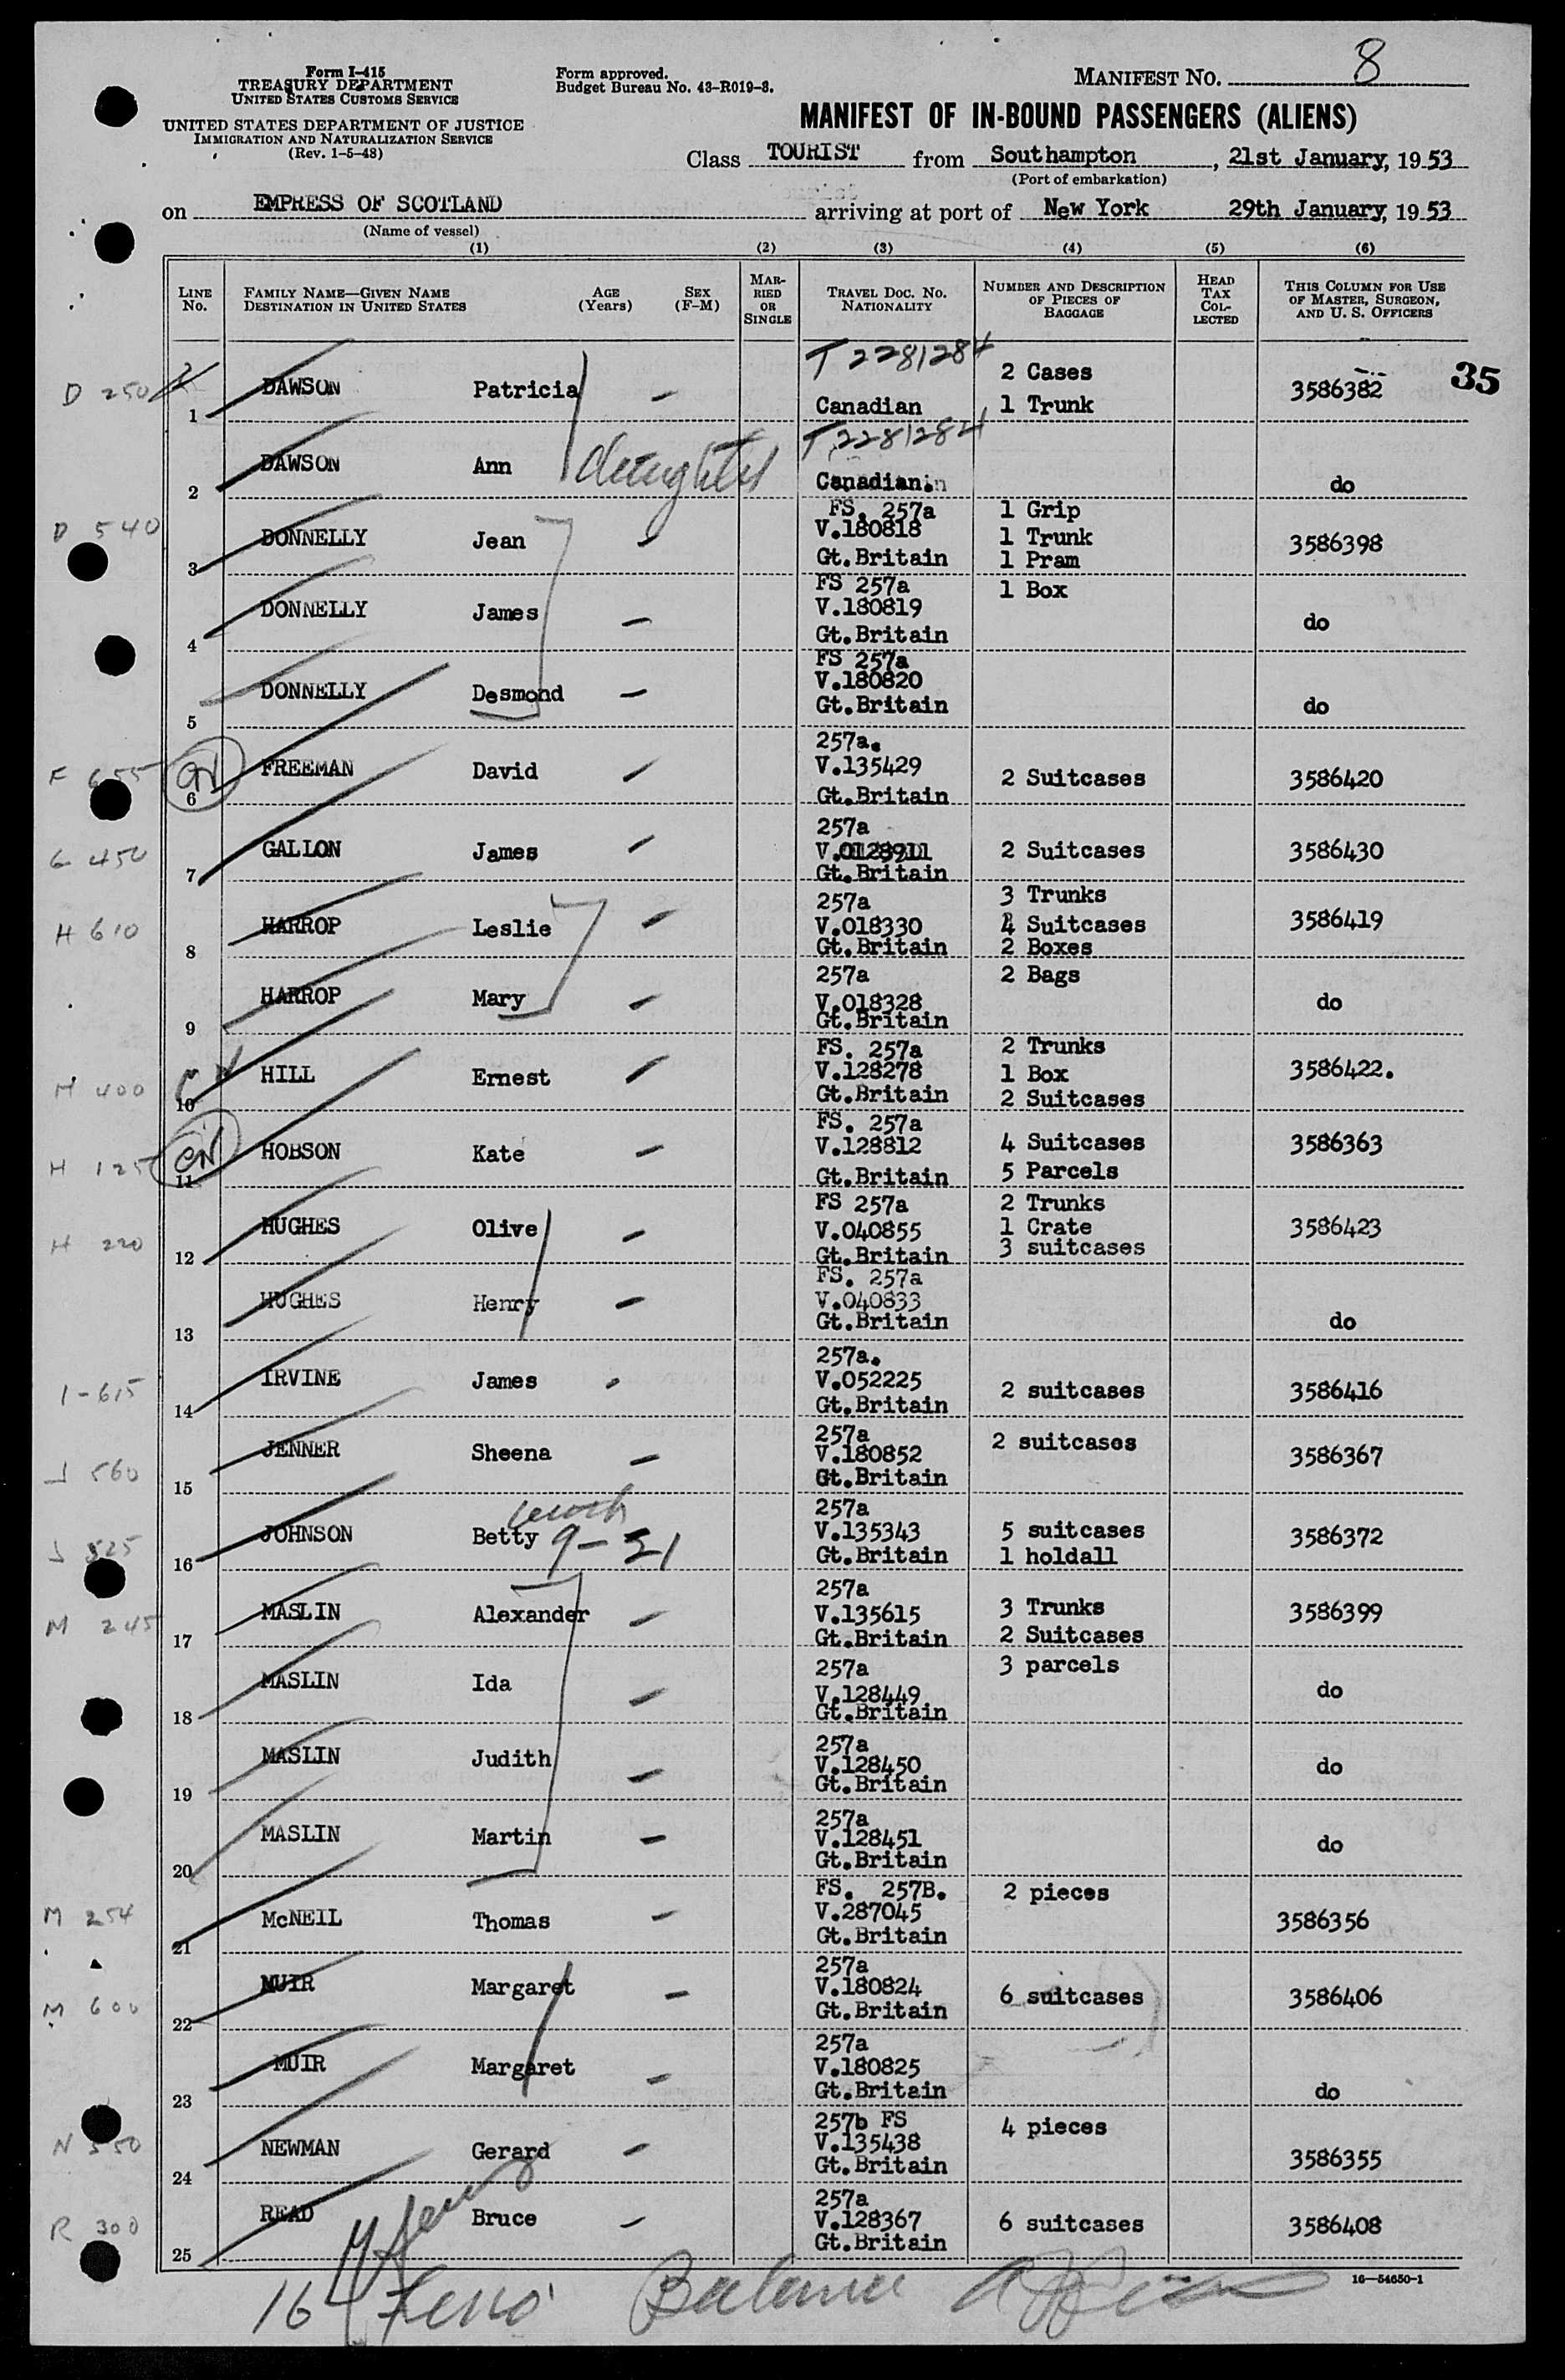 Form I-415
TREASURY DEPARTMENT
UNITED STATES CUSTOMS SERVICE
UNITED STATES DEPARTMENT OF JUSTICE
IMMIGRATION AND NATURALIZATION SERVICE
(Rev. 1-5-48)
Form approved.
Budget Bureau No. 43-R019-3.
MANIFEST NO. 8
MANIFEST OF IN-BOUND PASSENGERS (ALIENS)
Class TOURIST from Southampton, 21st January, 1953
(Port of embarkation)
on EMPRESS OF SCOTLAND arriving at port of New York 29th January, 1953
(Name of vessel)
(1) (2) (3) (4) (5) (6)
LINE No. FAMILY NAME—GIVEN NAME DESTINATION IN UNITED STATES AGE (Years) SEX (F-M) MARRIED OR SINGLE TRAVEL DOC. NO. NATIONALITY NUMBER AND DESCRIPTION OF PIECES OF BAGGAGE HEAD TAX COLLECTED THIS COLUMN FOR USE OF MASTER, SURGEON, AND U. S. OFFICERS
35
D 250 1 DAWSON Patricia T2281284 Canadian 2 Cases 1 Trunk 3586382
2 DAWSON Ann daughter T2281284 Canadian. do
D 540 3 DONNELLY Jean FS. 257a V.180818 Gt.Britain 1 Grip 1 Trunk 1 Pram 3586398
4 DONNELLY James FS 257a V.180819 Gt.Britain 1 Box do
5 DONNELLY Desmond FS 257a V.180820 Gt.Britain do
F 655 6 FREEMAN David 257a. V.135429 Gt.Britain 2 Suitcases 3586420
G 450 7 GALLON James 257a V.0128911 Gt.Britain 2 Suitcases 3586430
H 610 8 HARROP Leslie 257a V.018330 Gt.Britain 3 Trunks 4 Suitcases 2 Boxes 3586419
9 HARROP Mary 257a V.018328 Gt.Britain 2 Bags do
H 400 10 HILL Ernest FS. 257a V.128278 Gt.Britain 2 Trunks 1 Box 2 Suitcases 3586422.
H 125 11 HOBSON Kate FS. 257a V.128812 Gt.Britain 4 Suitcases 5 Parcels 3586363
H 220 12 HUGHES Olive FS 257a V.040855 Gt.Britain 2 Trunks 1 Crate 3 suitcases 3586423
13 HUGHES Henry FS. 257a V.040833 Gt.Britain do
I-615 14 IRVINE James 257a. V.052225 Gt.Britain 2 suitcases 3586416
J 560 15 JENNER Sheena 257a V.180852 Gt.Britain 2 suitcases 3586367
J 525 16 JOHNSON Betty 9-21 257a V.135343 Gt.Britain 5 suitcases 1 holdall 3586372
M 245 17 MASLIN Alexander 257a V.135615 Gt.Britain 3 Trunks 2 Suitcases 3586399
18 MASLIN Ida 257a V.128449 Gt.Britain 3 parcels do
19 MASLIN Judith 257a V.128450 Gt.Britain do
20 MASLIN Martin 257a V.128451 Gt.Britain do
M 254 21 McNEIL Thomas FS. 257B. V.287045 Gt.Britain 2 pieces 3586356
M 600 22 MUIR Margaret 257a V.180824 Gt.Britain 6 suitcases 3586406
23 MUIR Margaret 257a V.180825 Gt.Britain do
N 550 24 NEWMAN Gerard 257b FS V.135438 Gt.Britain 4 pieces 3586355
R 300 25 READ Bruce 257a V.128367 Gt.Britain 6 suitcases 3586408
16 Balance
16—54650-1